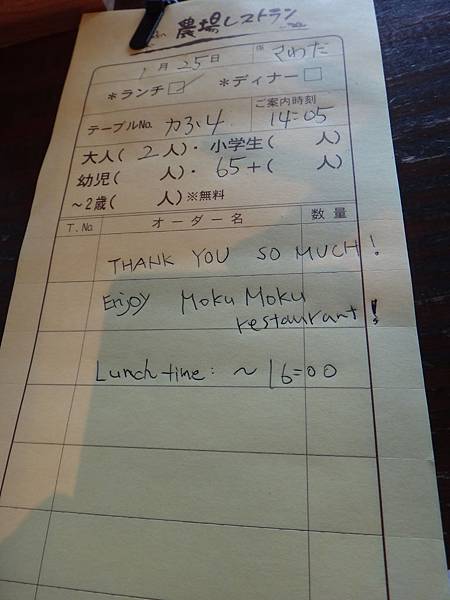 農場レストラン
1月25日 係 さわだ
*ランチ☑ *ディナー☐
テーブルNo. カふ4 ご案内時刻 14:05
大人( 2人)・小学生( 人)
幼児( 人)・65+( 人)
~2歳( 人)※無料
T.No. オーダー名 数量
THANK YOU SO MUCH!
Enjoy Moku Moku
restaurant!
Lunch time: ~16:00